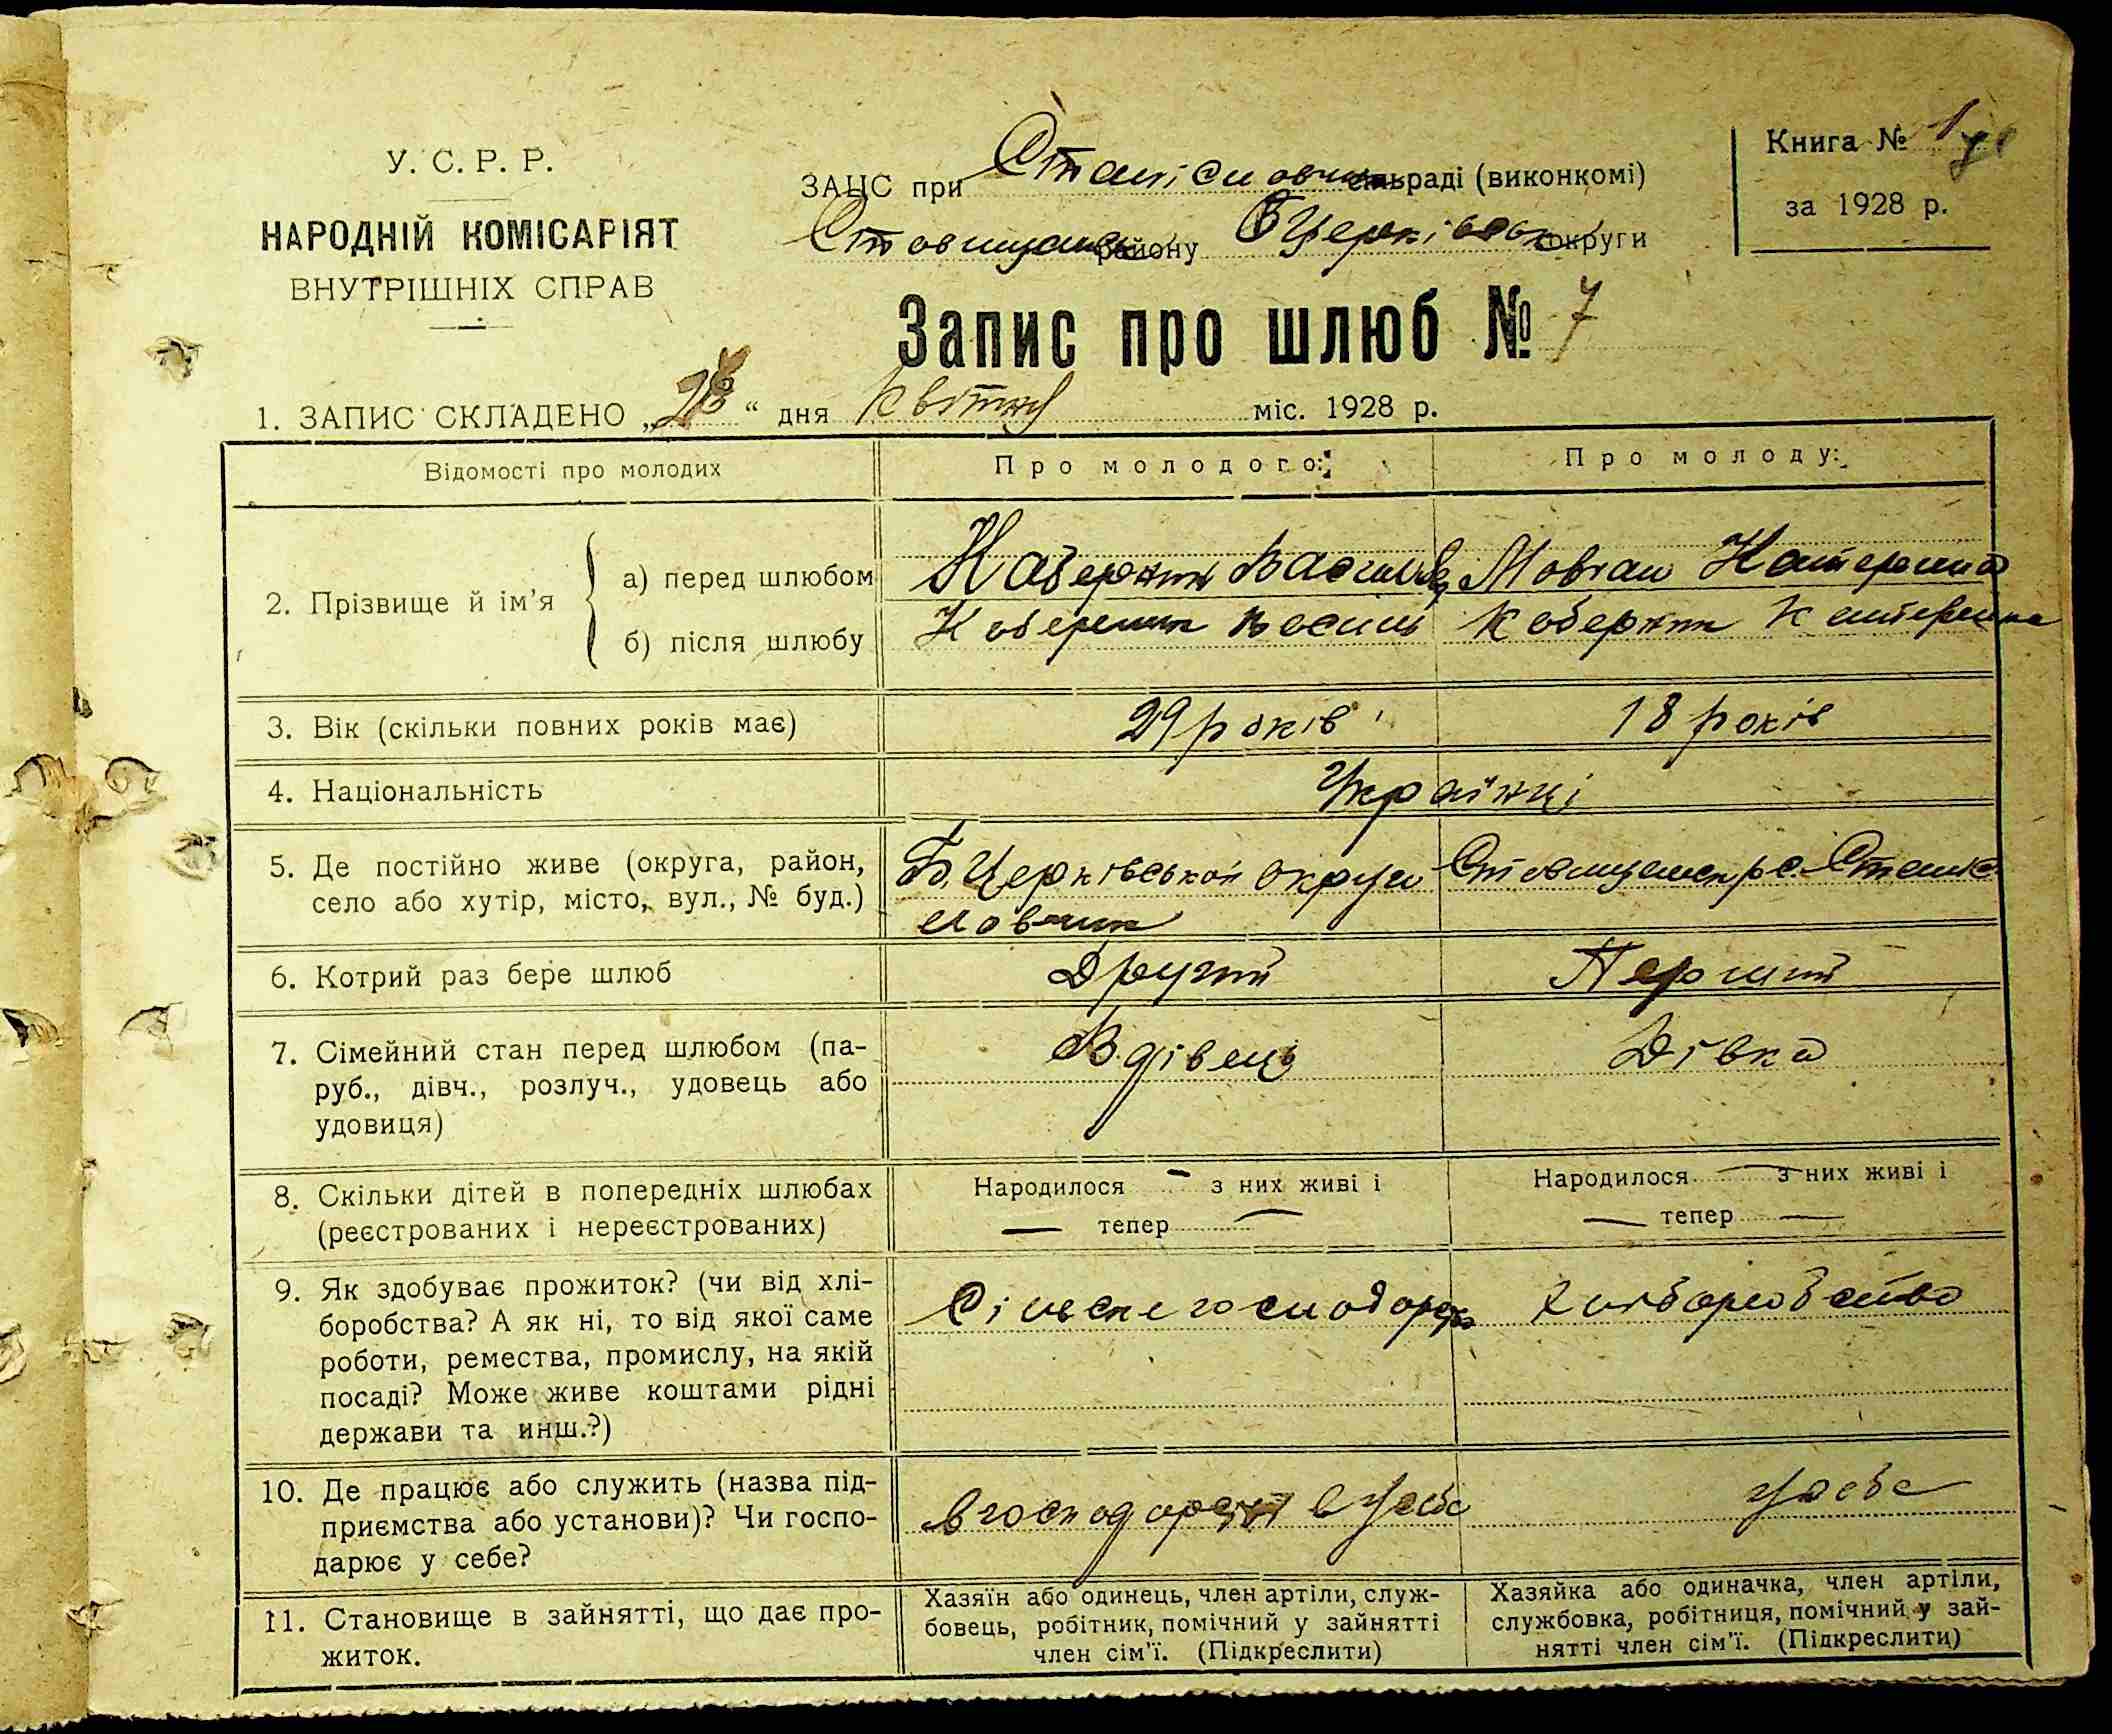 У. С. Р. Р.
НАРОДНІЙ КОМІСАРІЯТ
ВНУТРІШНІХ СПРАВ
ЗАЦС при Станіславчик сільраді (виконкомі)
Ставищанськ району БЦерківськ округи
Книга №
за 1928 р.
Запис про шлюб № 7
1. ЗАПИС СКЛАДЕНО „ “ дня квітня міс. 1928 р.
Відомості про молодих
Про молодого:
Про молоду:
2. Прізвище й ім’я
а) перед шлюбом
Каберник Василь
Мовчан Катерина
б) після шлюбу
Коберник Василь
Коберник Катерина
3. Вік (скільки повних років має)
29 років
18 років
4. Національність
Українці
5. Де постійно живе (округа, район,
село або хутір, місто, вул., № буд.)
Б.Церківської округи Ставищанськ р с. Станіс
лавчик
6. Котрий раз бере шлюб
Другий
Перший
7. Сімейний стан перед шлюбом (па-
руб., дівч., розлуч., удовець або
удовиця)
Вдівець
Дівка
8. Скільки дітей в попередніх шлюбах
(реєстрованих і нереєстрованих)
Народилося — з них живі і
— тепер —
Народилося — з них живі і
— тепер —
9. Як здобуває прожиток? (чи від хлі-
боробства? А як ні, то від якої саме
роботи, ремества, промислу, на якій
посаді? Може живе коштами рідні
держави та инш.?)
Сільське господарс
Хліборобство
10. Де працює або служить (назва під-
приємства або установи)? Чи госпо-
дарює у себе?
в господарстві в себе
у себе
11. Становище в зайнятті, що дає про-
житок.
Хазяїн або одинець, член артіли, служ-
бовець, робітник, помічний у зайнятті
член сім’ї. (Підкреслити)
Хазяйка або одиначка, член артіли,
службовка, робітниця, помічний у зай-
нятті член сім’ї. (Підкреслити)